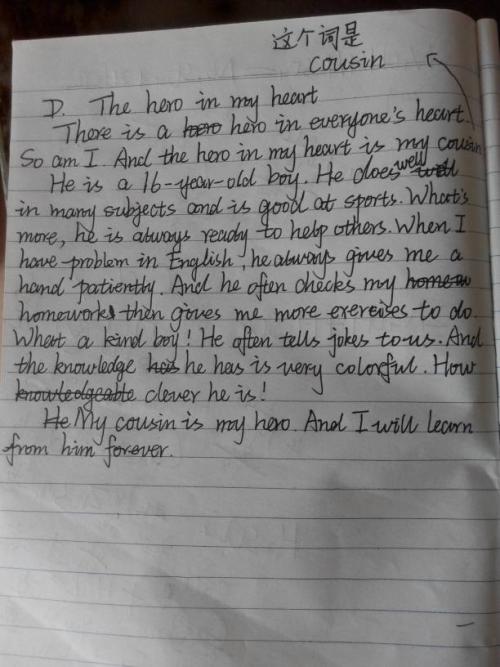 这个词是
cousin
D. The hero in my heart
There is a hero hero in everyone's heart.
So am I. And the hero in my heart is my cousin
He is a 16-year-old boy. He does well well
in many subjects and is good at sports. What's
more, he is always ready to help others. When I
have problem in English, he always gives me a
hand patiently. And he often checks my home
homework, then gives me more exercises to do.
What a kind boy! He often tells jokes to us. And
the knowledge has he has is very colorful. How
knowledgeable clever he is!
He My cousin is my hero. And I will learn
from him forever.